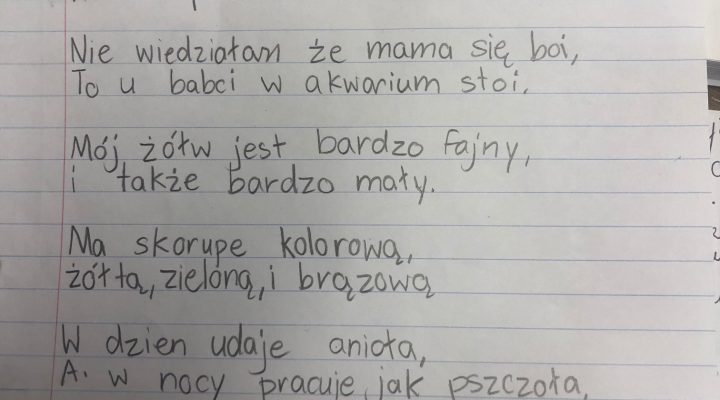 Nie wiedziałam że mama się boi,
To u babci w akwarium stoi.
Mój żółw jest bardzo fajny,
i także bardzo mały.
Ma skorupe kolorową,
żółtą, zieloną, i brązową
W dzien udaje anioła,
A. w nocy pracuje jak pszczoła,